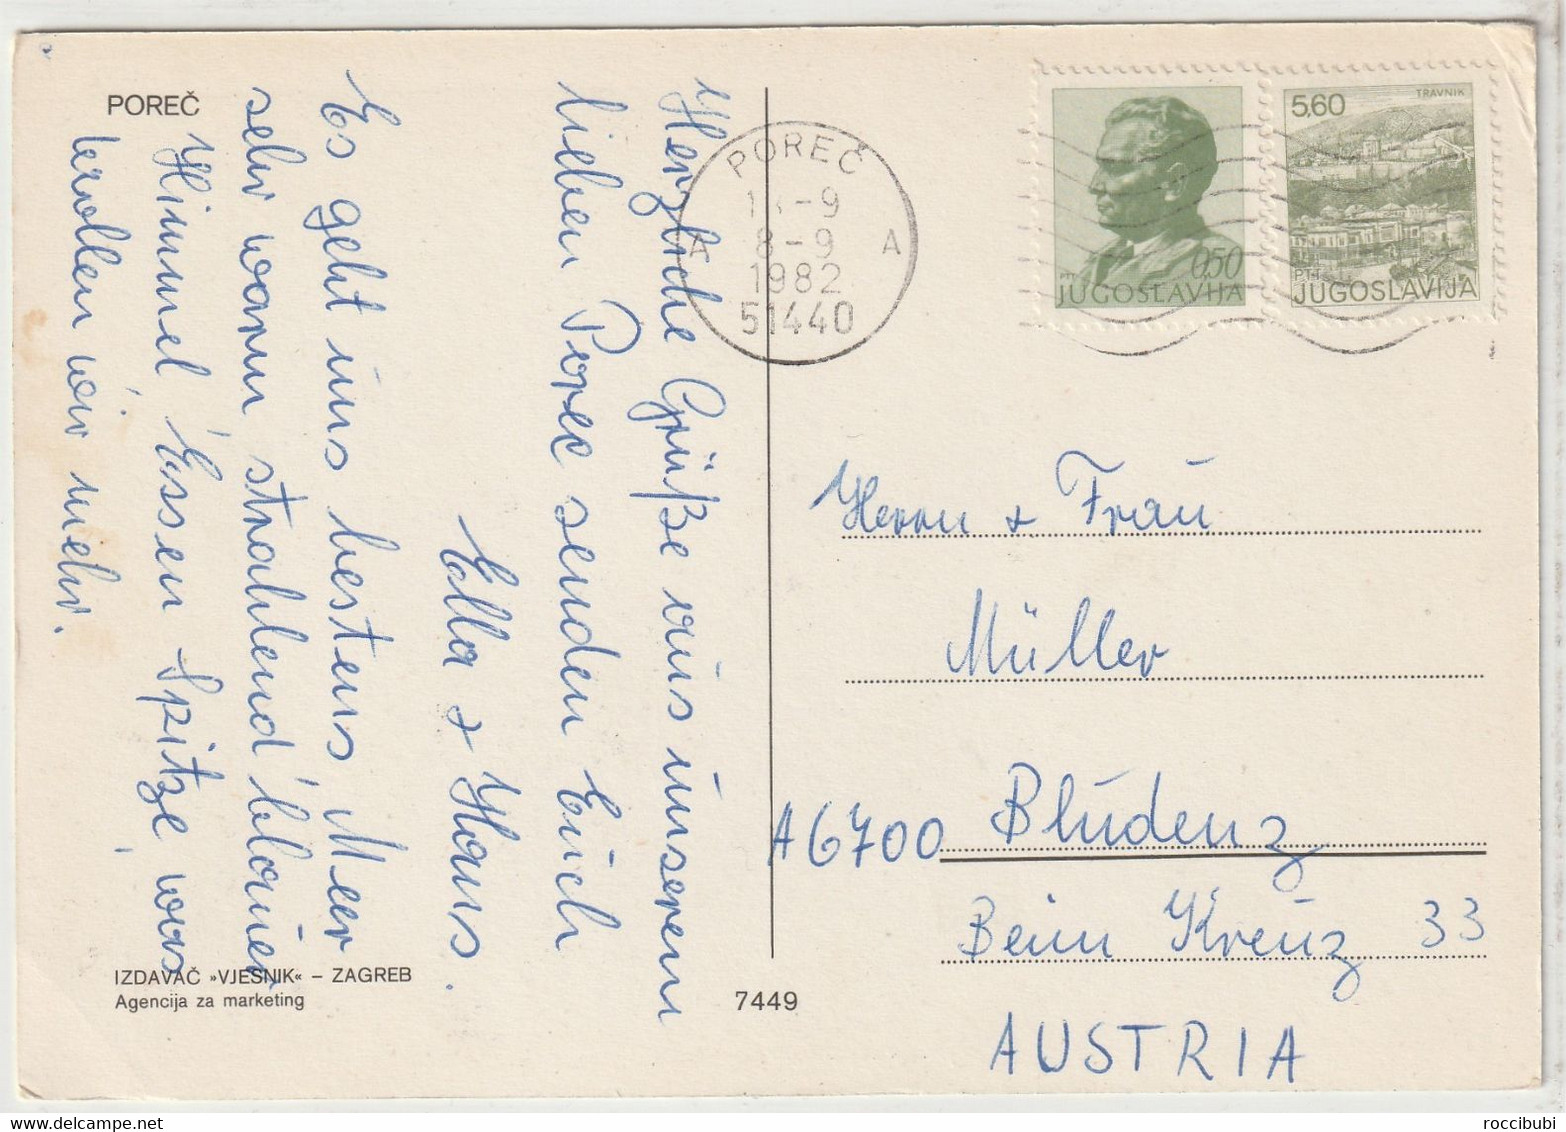 POREČ
Herzliche Grüße aus unserem
lieben Porec senden Euch
Ella + Hans.
Es geht uns bestens, Meer
sehr warm strahlend blauer
Himmel, Essen Spitze, was
wollen wir mehr.
IZDAVAČ »VJESNIK« – ZAGREB
Agencija za marketing
7449
POREČ
8-9
1982
51440
A A
0,50
JUGOSLAVIJA
TRAVNIK
5,60
PTT
JUGOSLAVIJA
Herrn + Frau
Müller
A6700 Bludenz
Beim Kreuz 33
AUSTRIA
roccibubi